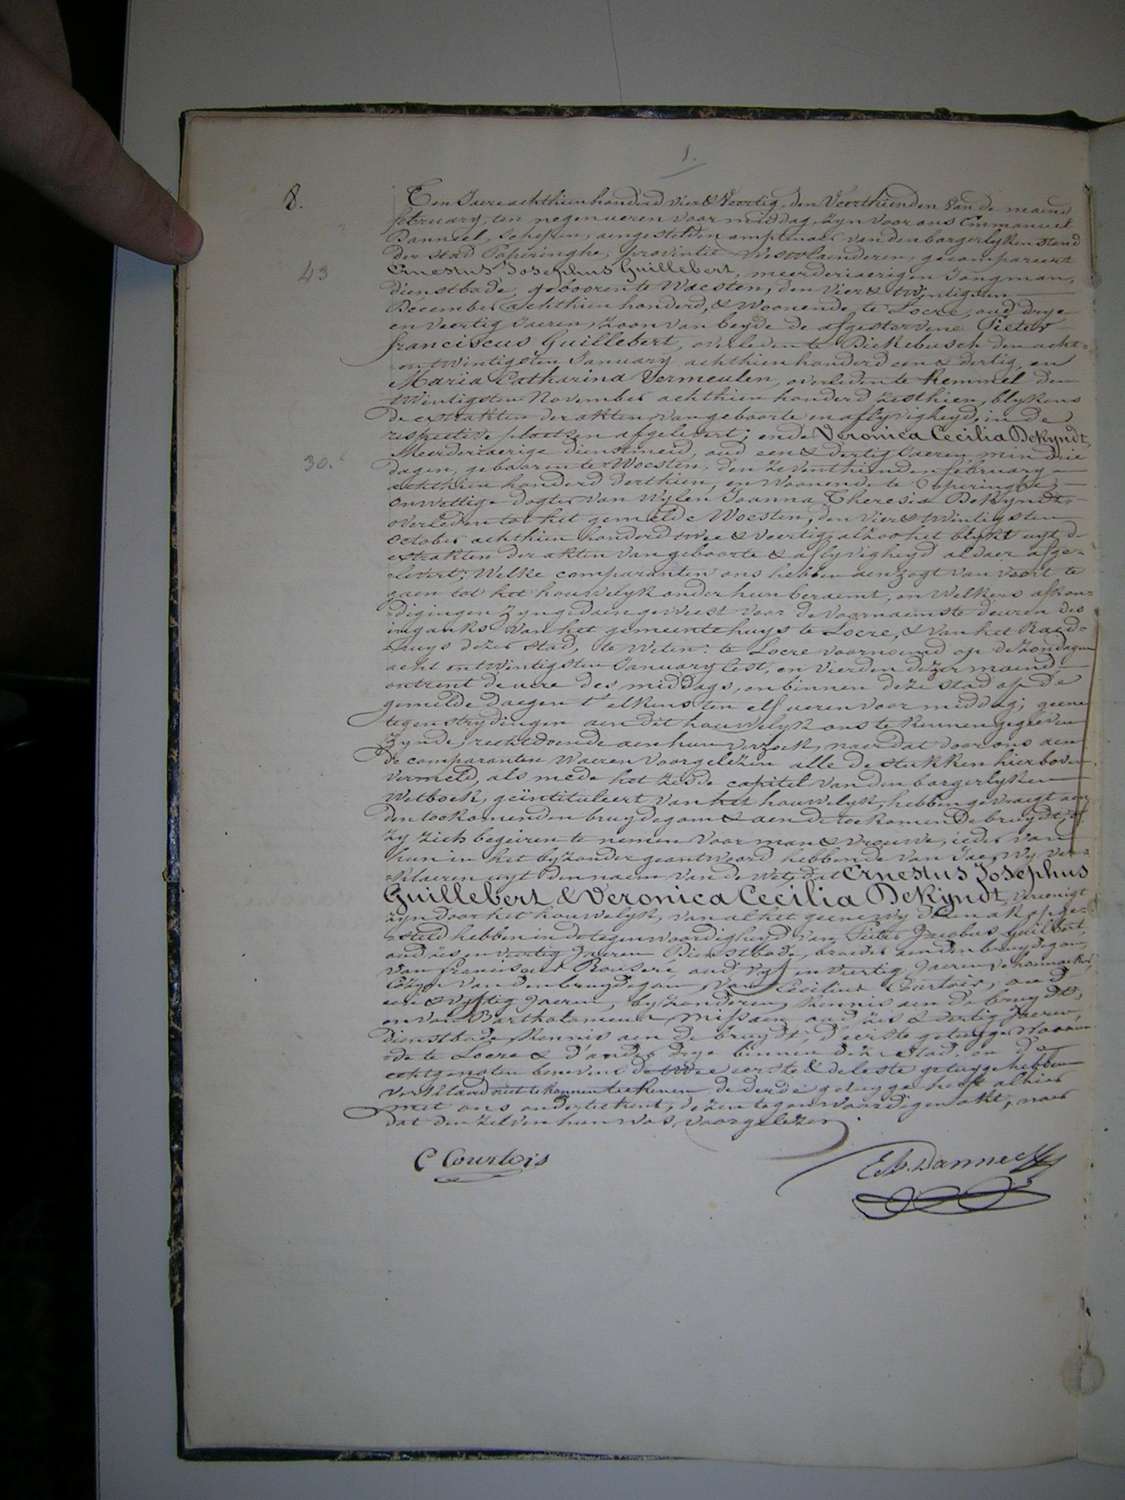 1.
8.
Ten Jaere achthien honderd vier & Veertig, den Veerthienden van de maend
february, ten negen ueren voor middag, zyn voor ons Emmanuel
Banneel, schepen, aengestelden amptenaer van den borgerlyken stand
der stad Poperinghe, provintie Westvlaenderen, gecompareert
43
Ernestus Josephus Guillebert, meerderjaerigen Jongman,
dienstbode, gebooren te Waesten, den Vier & twintigsten
December achthien honderd, & Woonende te Locre, oud drye
en veertig Jaeren, Zoon van beyde de afgestorvene Pieter
franciscus Guillebert, overleden te Dickebusch den acht
en twintigsten January achthien honderd een & dertig, en
Maria Catharina Vermeulen, overleden te Kemmel den
twintigsten November achthien honderd zesthien, blykens
de extrakten der akten van geboorte en aflyvigheyd, in de
respective plaetzen afgelevert; ende Veronica Cecilia DeKyndt,
30.
Meerderjaerige dienstmeid, oud een & dertig Jaeren min drie
dagen, gebooren te Woesten, den zeventhienden february
achthien honderd derthien, en Woonende te Poperinghe,
onwettige dogter van Wylen Joanna Theresia DeKyndt,
overleden tot het gemelde Woesten, den Vier & twintigsten
October achthien honderd twee & Veertig, alzoo het blykt uyt de
extrakten der akten van geboorte & aflyvigheyd aldaer afge-
levert; Welke comparanten ons hebben aenzogt van voort te
gaen tot het houwelyk onder hun beraemt, en Welkers afkon-
digingen zyn gedaen geweest voor de voornaemste deuren des
ingangs van het gemeentehuys te Locre, & van het Raed-
huys dezer stad, te Weten: te Locre voornoemd op de zondagen
acht en twintigsten January lest, en vierden dezer maend,
ontrent de uere des middags, en binnen deze stad op de
gemelde daegen t'elkens ten elf ueren voor middag; geene
tegenstrydingen aen dit houwelyk ons te kennen gegeven
zynde, rechtdoende aen hun verzoek, naer dat door ons aen
de comparanten Waeren voorgelezen alle de stukken hierboven
vermeld, als mede het zesde capitel van den borgerlyken
Wetboek, geïntituleert van het houwelyk, hebben gevraegt aen
den toekomenden bruydegom & aen de toekomende bruydt, of
zy zich begeiren te nemen voor man & vrouwe, ieder van
hun in het byzonder geantwoord hebbende van Jae, Wy ver-
klaeren uyt den naem van de Wet, dat Ernestus Josephus
Guillebert & Veronica Cecilia DeKyndt, vereenigt
zyn door het houwelyk, van al het geene wy deze akt opge-
steld hebben in de tegenwoordigheyd van Pieter Jacobus Guilbert,
oud zes en veertig Jaeren, Dienstbode, broeder aen den bruydegom,
van francis Rousere, oud vyf en veertig Jaeren,
Cozyn van den bruydegom, van Cecilius Courtois, oud
een & vyftig Jaeren, byzonderen, kennis aen de bruydt,
en van Bartholomeus Missaen, oud zes & dertig Jaeren,
dienstbode kennis aen de bruydt; d'eerste getuyge Woonen-
de te Locre & d'ander drye binnen deze stad: en d'e
echtgenoten benevens de twee eerste & de leste getuyge hebben
verklaerd niet te konnen teekenen de derde getuyge heeft alhier
met ons onderteekent, dezen tegenwoordigen akt, naer
dat den zelven hun was voorgelezen
C Courtois
Em. Banneel